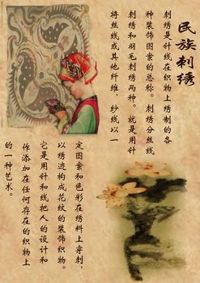 民族刺绣
刺绣是针线在织物上绣制的各
种装饰图案的总称。刺绣分丝线
刺绣和羽毛刺绣两种。就是用针
将丝线或其他纤维、纱线以一
定图案和色彩在绣料上穿刺，
以绣迹构成花纹的装饰织物。
它是用针和线把人的设计和
作添加在任何存在的织物上
的一种艺术。